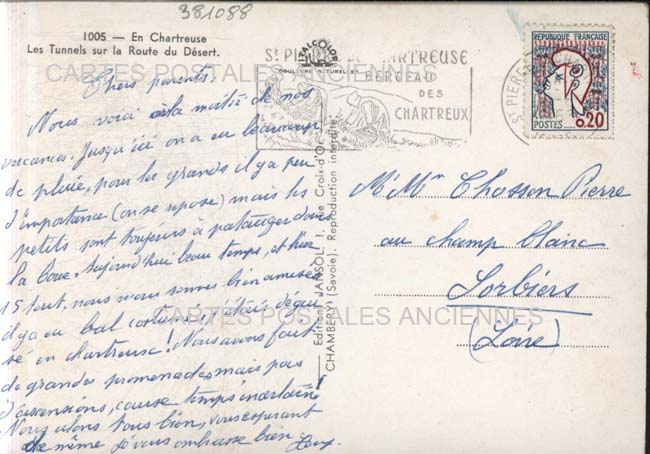 381088
1005 — En Chartreuse
Les Tunnels sur la Route du Désert.
Chers parents.
Nous voici à la moitié de nos
vacances. Jusqu'ici on a eu beaucoup
de pluie, pour les grands il y a peu
d'importance (on se repose) mais les
petits sont toujours à patauger dans
la boue. Aujourd'hui beau temps, et hier
15 Août, nous nous sommes bien amusés
il y a eu bal costumé, j'étais dégui
sé en chartreuse! Nous avons fait
de grandes promenades mais pas
d'ascensions, cause temps incertain!
Nous allons tous bien, vous espérant
de même je vous embrasse bien
ITALCOLOR
COULEURS NATURELLES
Editions JANSOL, 1, rue Croix-d'Or
CHAMBÉRY (Savoie). Reproduction interdite.
ST PIERRE DE CHARTREUSE
BERCEAU
DES
CHARTREUX
ST PIERRE
REPUBLIQUE FRANCAISE
POSTES
0.20
M. Mme Chosson Pierre
au champ blanc
Sorbiers
(Loire)
CARTES POSTALES ANCIENNES
CARTES POSTALES ANCIENNES